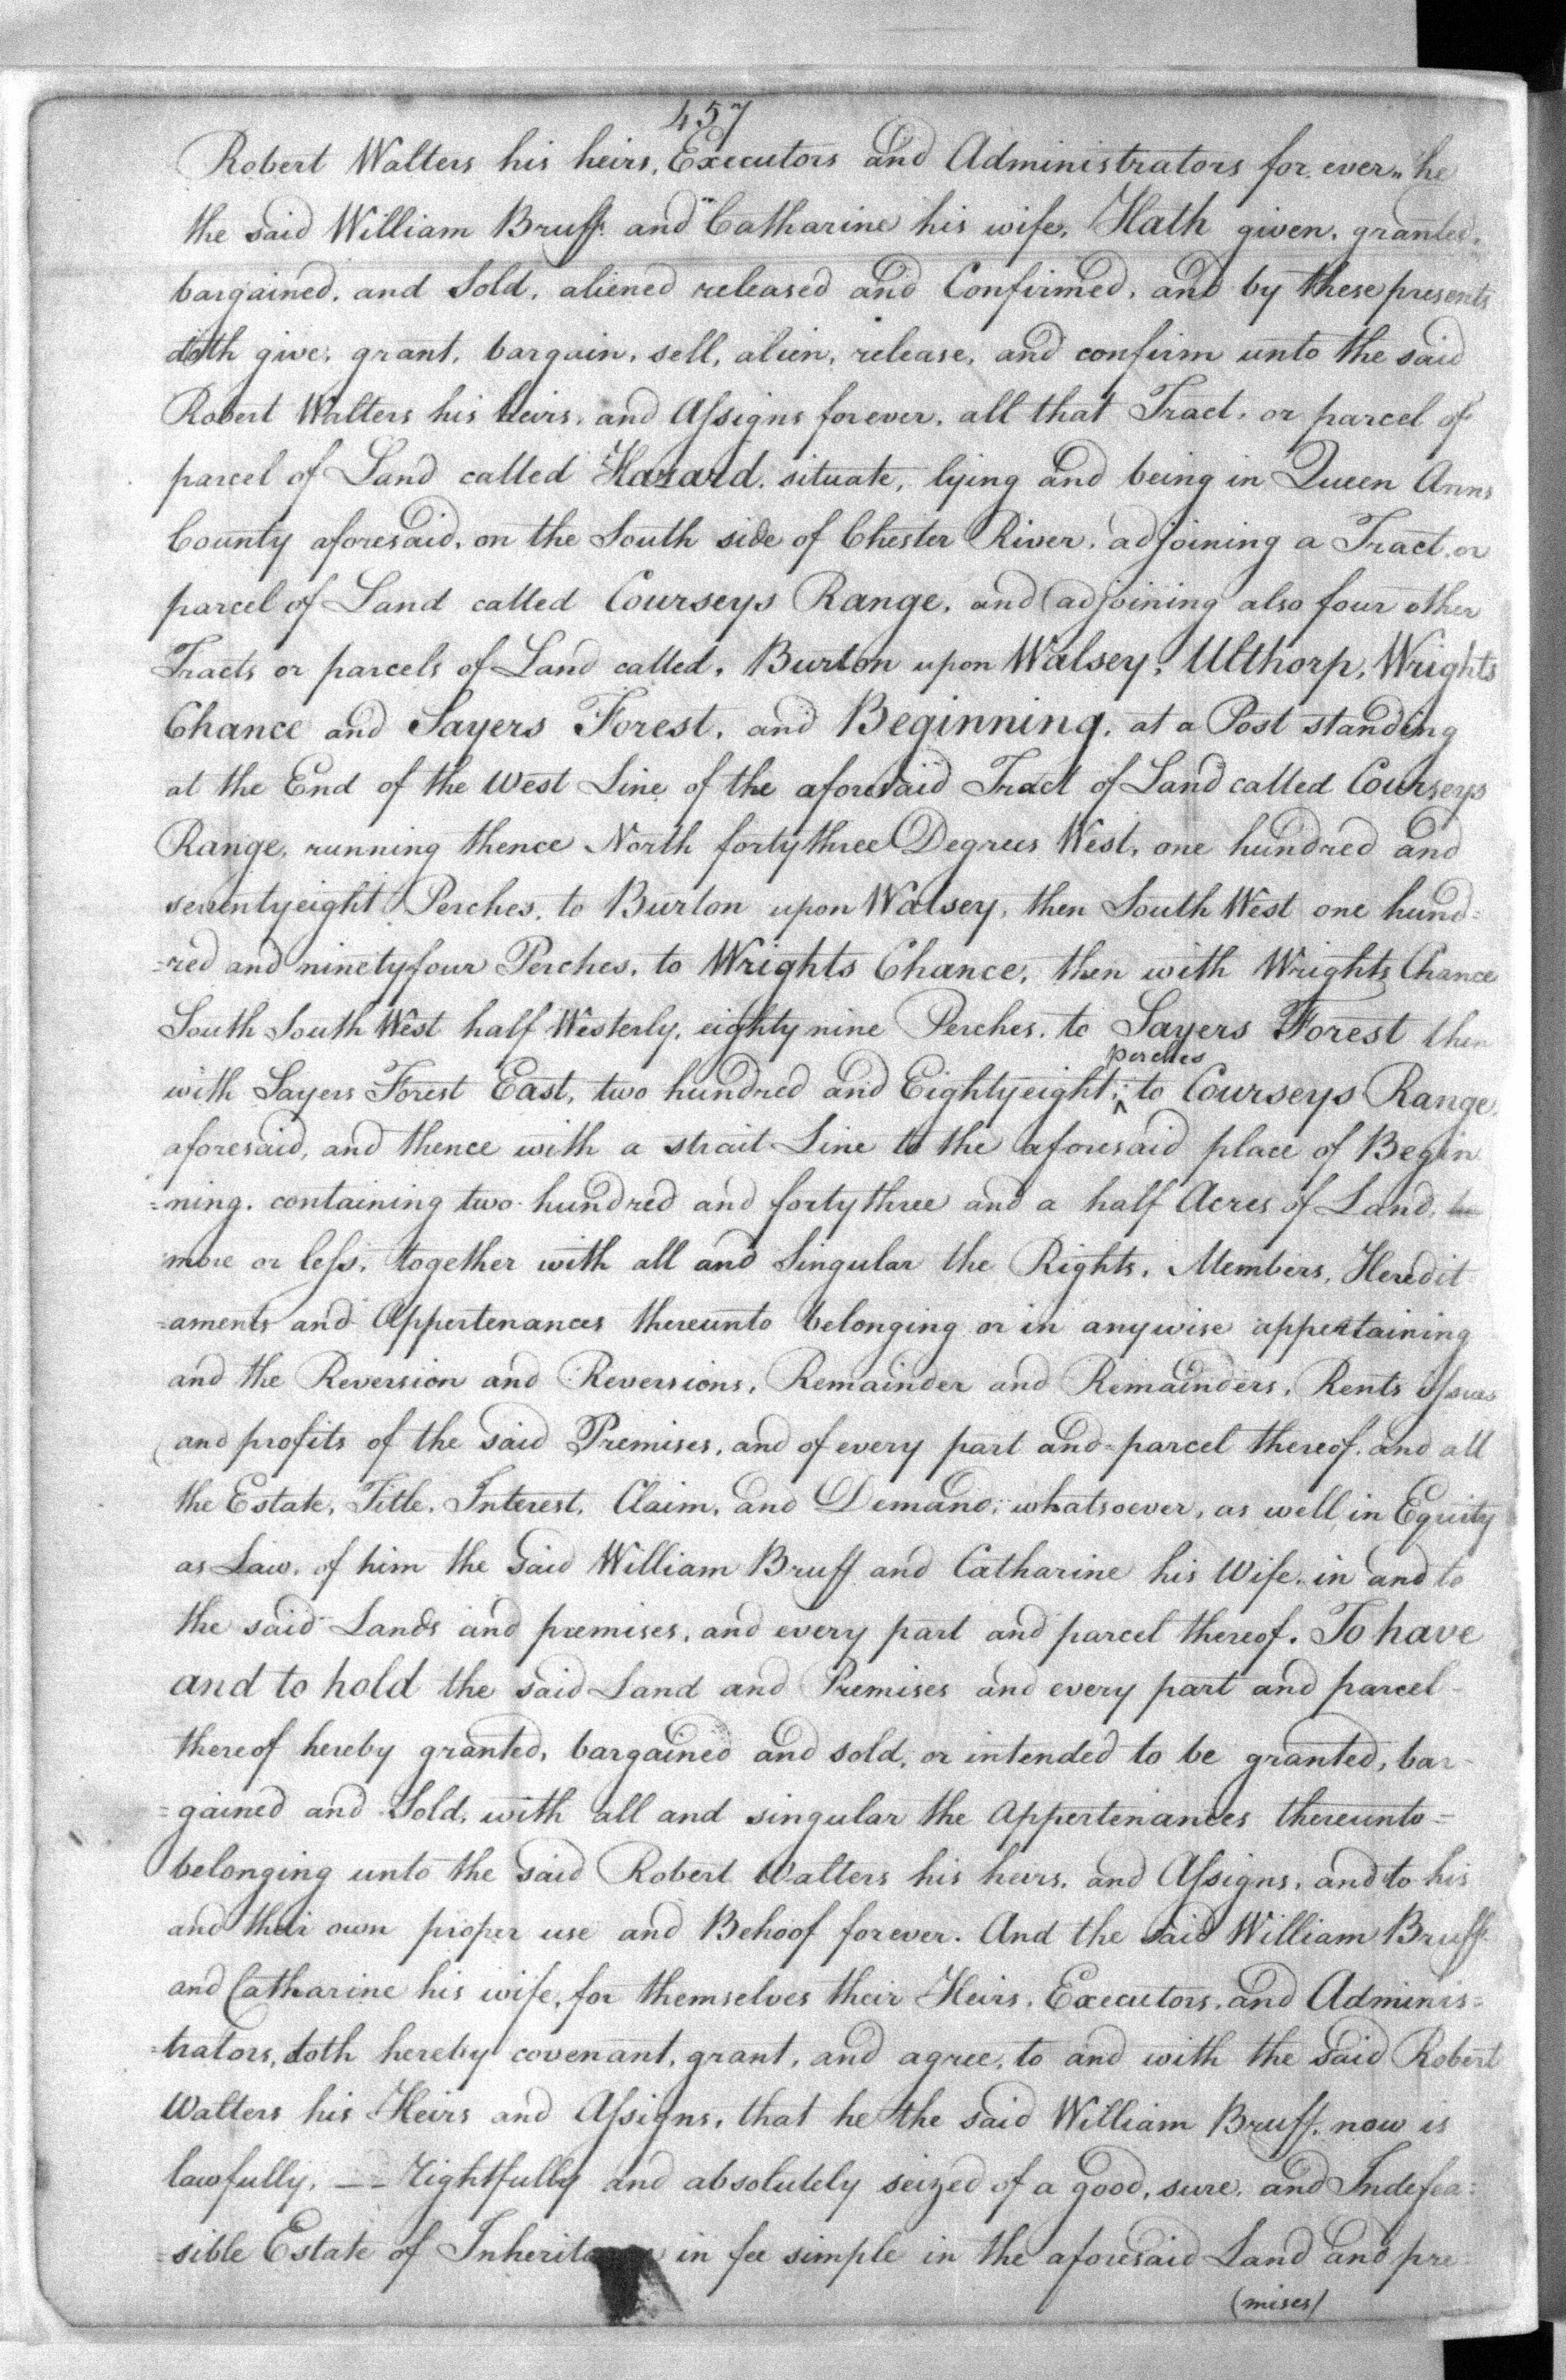 457
Robert Walters his heirs, Executors and Administrators for ever, he
the said William Bruff and Catharine his wife, Hath given, granted,
bargained, and Sold, aliened released and Confirmed, and by these presents
doth give, grant, bargain, sell, alien, release, and confirm unto the said
Robert Walters his heirs, and Aſsigns forever, all that Tract, or parcel of
parcel of Land called Hazard, situate, lying and being in Queen Anns
County aforesaid, on the South side of Chester River, adjoining a Tract, or
parcel of Land called Courseys Range, and adjoining also four other
Tracts or parcels of Land called, Burton upon Walsey, Ulthorp, Wrights
Chance and Sayers Forest, and Beginning, at a Post standing
at the End of the West Line of the aforesaid Tract of Land called Courseys
Range, running thence North forty three Degrees West, one hundred and
seventyeight Perches, to Burton upon Walsey, then South West one hund=
=red and ninetyfour Perches, to Wrights Chance, then with Wrights Chance
South South West half Westerly, eighty nine Perches, to Sayers Forest then
perches
with Sayers Forest East, two hundred and Eightyeight, ^ to Courseys Range,
aforesaid, and thence with a strait Line to the aforesaid place of Begin
=ning, containing two hundred and fortythree and a half Acres of Land,
more or leſs, together with all and Singular the Rights, Members, Heredit=
=aments and Appertenances thereunto belonging or in anywise appertaining
and the Reversion and Reversions, Remainder and Remainders, Rents iſsues
and profits of the said Premises, and of every part and parcel thereof, and all
the Estate, Title, Interest, Claim, and Demand, whatsoever, as well in Equity
as Law, of him the said William Bruff and Catharine his Wife, in and to
the said Lands and premises, and every part and parcel thereof. To have
and to hold the said Land and Premises and every part and parcel-
thereof hereby granted, bargained and sold, or intended to be granted, bar-
=gained and Sold, with all and singular the Appertenances thereunto=
belonging unto the said Robert Walters his heirs, and Aſsigns, and to his
and their own proper use and Behoof forever. And the said William Bruff
and Catharine his wife, for themselves their Heirs, Executors, and Adminis=
=trators, doth hereby covenant, grant, and agree, to and with the said Robert
Walters his Heirs and Aſsigns, that he the said William Bruff, now is
lawfully, -- Rightfully and absolutely seized of a good, sure, and Indefea=
=sible Estate of in fee simple in the aforesaid Land and pre=
(mises)